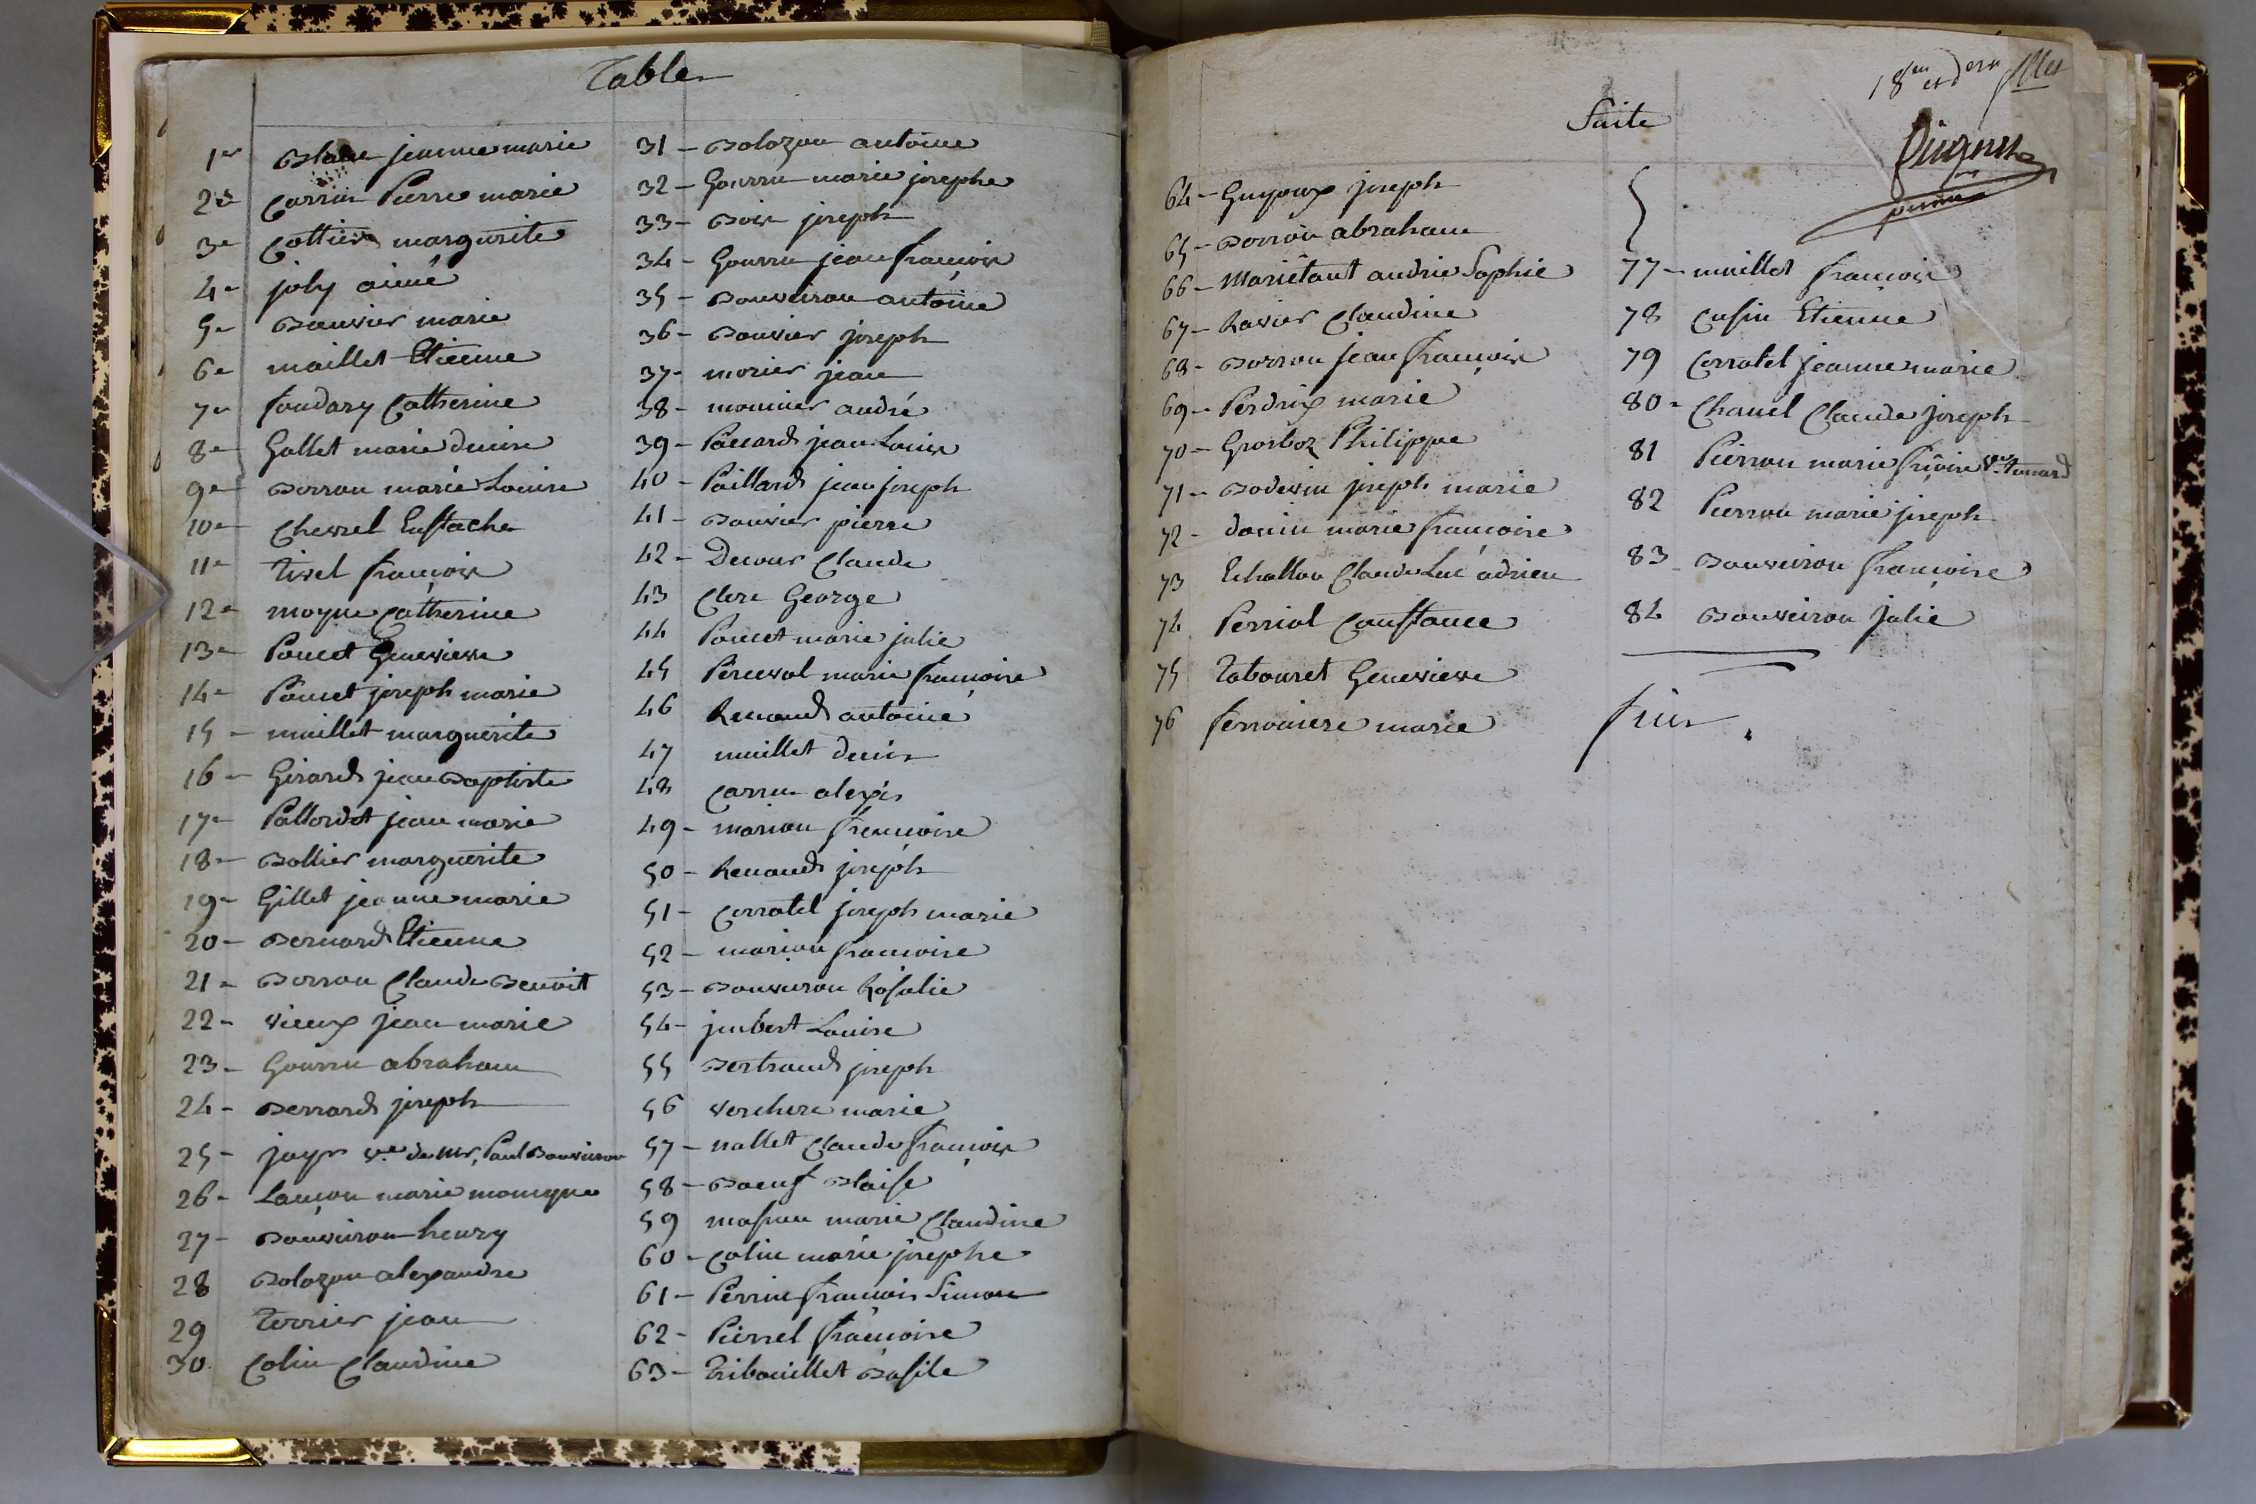 Table
1er Blanc jeanne marie
2e Carrin Pierre marie
3e Cottier margurite
4e joly aimé
5e Bouvier marie
6e maillet Etienne
7e foudary Catherine
8e Gallet marie denise
9e Borron marie Louise
10e Chevrel Eustache
11e Tivel francois
12e moyne Catherine
13e Poncet Genevieve
14e Poncet joseph marie
15 - maillet marguerite
16 - Girard jean Baptiste
17 - Pallordet jean marie
18 - Bollier marguerite
19 - Gillet jeanne marie
20 - Bernard Etienne
21 - Borron Claude Benoit
22 - vieux jean marie
23 - Gourru abraham
24 - Berrard joseph
25 - jayr ve de Mr. Paul Bouveiron
26 - Lançon marie
27 - Bouveiron henry
28 Bolozon alexandre
29 Terrier jean
30 Colin Claudine
31 - Bolozon antoine
32 - Gourru marie josephe
33 - Bois joseph
34 - Gourru jean françois
35 - Bouveiron antoine
36 - Bouvier joseph
37 - morier jean
38 - monnier andré
39 - jean Louis
40 - Paillard jean joseph
41 - Bouvier pierre
42 - Decour Claude
43 Clerc George
44 Poncet marie julie
45 Perceval marie françoise
46 Renaud antoine
47 maillet denis
48 Carrin alexis
49 - marion françoise
50 - Renaud joseph
51 - Corratel joseph marie
52 - marion francoise
53 - Bouveiron Rosalie
54 - jmbert Louise
55 Bertrand joseph
56 verchere marie
57 - nallet Claude françois
58 - Boeuf Blaise
59 marie Claudine
60 - Colin marie josephe
61 - Perrin francois Simon
62 - Pierrel françoise
63 - Tribouillet Basile
18en et dern fllet
Suite
64 - Guyoux joseph
65 - Borron abraham
66 - Mariétant andrie Sophie
67 - Ravier Claudine
68 - Borron jean françois
69 - Perdrix marie
70 - Grosboz Philippe
71 - Bodevin joseph marie
72 - marie françoise
73 Echallon Claude Luc adrien
74 Perriol Constance
75 Tabouret Genevieve
76 marie
77 - maillet françois
78 Cusin Etienne
79 Corratel jeanne marie
80 - Chanel Claude joseph
81 Pierron marie frçoise ve
82 Pierron marie joseph
83 - Bouveiron françoise
84 Bouveiron julie
fin.